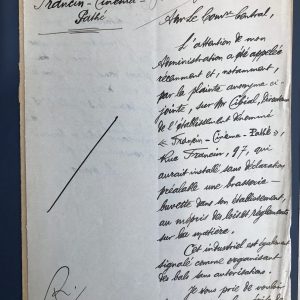 Francin - Cinéma -
Pathé
A Mr le Comre Central,
L'attention de mon
Administration a été appelée
récemment et, notamment,
par la plainte anonyme ci-
jointe, sur Mr Cibial, Directeur
de l'établissement dénommé
« Francin - Cinéma - Pathé »,
Rue Francin, 97, qui
aurait installé sans déclaration
préalable une brasserie-
buvette dans son établissement,
au mépris des lois et règlements
sur la matière.
Cet industriel est également
signalé comme organisant
des bals sans autorisation.
Je vous prie de vouloir